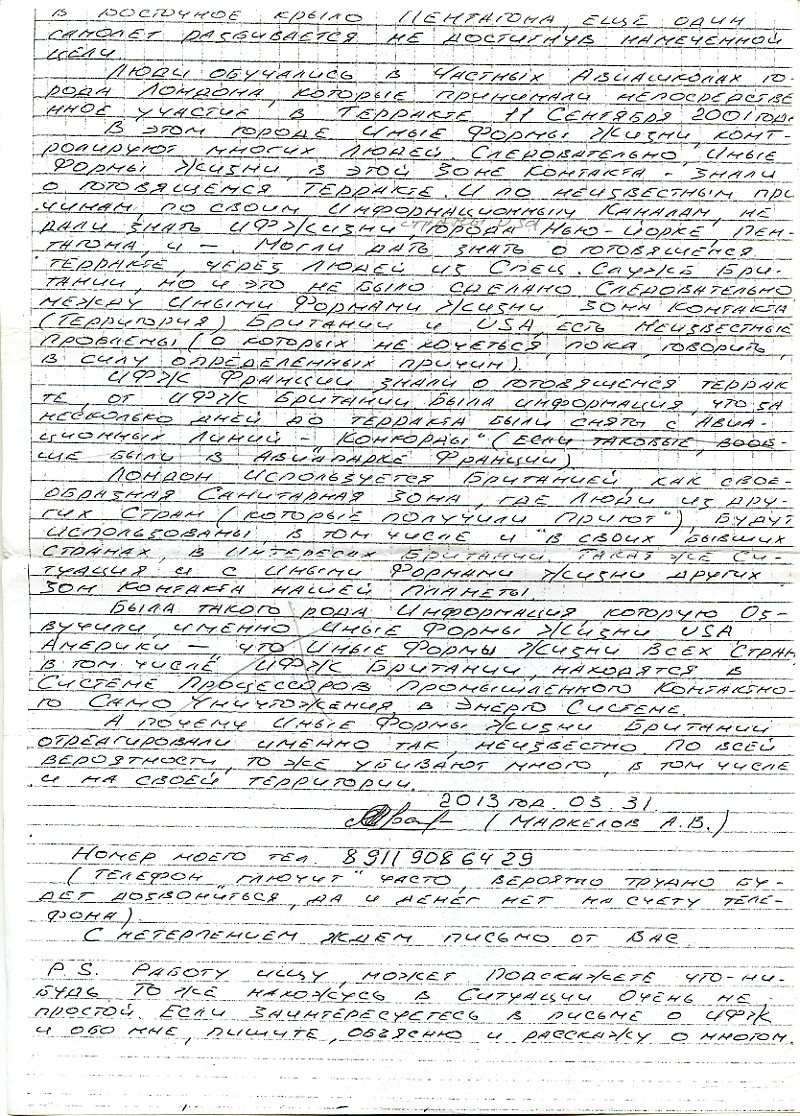 В ВОСТОЧНОЕ КРЫЛО ПЕНТАГОНА, ЕЩЕ ОДИН
САМОЛЕТ РАЗБИВАЕТСЯ НЕ ДОСТИГНУВ НАМЕЧЕННОЙ
ЦЕЛИ.
ЛЮДИ ОБУЧАЛИСЬ В ЧАСТНЫХ АВИАШКОЛАХ ГО-
РОДА ЛОНДОНА, КОТОРЫЕ ПРИНИМАЛИ НЕПОСРЕДСТВЕ
ННОЕ УЧАСТИЕ В ТЕРРАКТЕ 11 СЕНТЯБРЯ 2001 ГОДА
В ЭТОМ ГОРОДЕ ИНЫЕ ФОРМЫ ЖИЗНИ, КОНТ-
РОЛИРУЮТ МНОГИХ ЛЮДЕЙ. СЛЕДОВАТЕЛЬНО, ИНЫЕ
ФОРМЫ ЖИЗНИ, В ЭТОЙ ЗОНЕ КОНТАКТА - ЗНАЛИ
О ГОТОВЯЩЕМСЯ ТЕРРАКТЕ. И ПО НЕИЗВЕСТНЫМ ПРИ
ЧИНАМ, ПО СВОИМ ИНФОРМАЦИОННЫМ КАНАЛАМ, НЕ
ДАЛИ ЗНАТЬ ИФЖИЗНИ ГОРОДА НЬЮ-ЙОРКЕ, ПЕН-
ТАГОНА, И — МОГЛИ ДАТЬ ЗНАТЬ О ГОТОВЯЩЕМСЯ
ТЕРРАКТЕ, ЧЕРЕЗ ЛЮДЕЙ ИЗ СПЕЦ. СЛУЖБ БРИ-
ТАНИИ, НО И ЭТО НЕ БЫЛО СДЕЛАНО СЛЕДОВАТЕЛЬНО
МЕЖДУ ИНЫМИ ФОРМАМИ ЖИЗНИ, ЗОНА КОНТАКТА
(ТЕРРИТОРИЯ) БРИТАНИИ И USA, ЕСТЬ НЕИЗВЕСТНЫЕ
ПРОБЛЕМЫ (О КОТОРЫХ НЕ ХОЧЕТЬСЯ, ПОКА, ГОВОРИТЬ,
В СИЛУ ОПРЕДЕЛЕННЫХ ПРИЧИН).
ИФЖ ФРАНЦИИ ЗНАЛИ О ГОТОВЯЩЕМСЯ ТЕРРАК
ТЕ, ОТ ИФЖ БРИТАНИИ БЫЛА ИНФОРМАЦИЯ, ЧТО ЗА
НЕСКОЛЬКО ДНЕЙ ДО ТЕРРАКТА БЫЛИ СНЯТЫ С АВИА-
ЦИОННЫХ ЛИНИЙ - „КОНКОРДЫ" (ЕСЛИ ТАКОВЫЕ, ВООБ-
ЩЕ БЫЛИ В АВИАПАРКЕ ФРАНЦИИ)
ЛОНДОН ИСПОЛЬЗУЕТСЯ БРИТАНИЕЙ, КАК СВОЕ-
ОБРАЗНАЯ САНИТАРНАЯ ЗОНА, ГДЕ ЛЮДИ ИЗ ДРУ-
ГИХ СТРАН (КОТОРЫЕ ПОЛУЧИЛИ ПРИЮТ"), БУДУТ
ИСПОЛЬЗОВАНЫ, В ТОМ ЧИСЛЕ И "В СВОИХ БЫВШИХ
СТРАНАХ, В ИНТЕРЕСАХ БРИТАНИИ ТАКАЯ ЖЕ СИ-
ТУАЦИЯ И С ИНЫМИ ФОРМАМИ ЖИЗНИ ДРУГИХ
ЗОН КОНТАКТА НАШЕЙ ПЛАНЕТЫ.
БЫЛА ТАКОГО РОДА ИНФОРМАЦИЯ, КОТОРУЮ ОЗ-
ВУЧИЛИ, ИМЕННО ИНЫЕ ФОРМЫ ЖИЗНИ USA
АМЕРИКИ —, ЧТО ИНЫЕ ФОРМЫ ЖИЗНИ ВСЕХ СТРАН
В ТОМ ЧИСЛЕ ИФЖ БРИТАНИИ, НАХОДЯТСЯ В
СИСТЕМЕ ПРОЦЕССОРОВ ПРОМЫШЛЕННОГО КОНТАКТНО-
ГО САМО УНИЧТОЖЕНИЯ, В ЭНЕРГО СИСТЕМЕ.
А ПОЧЕМУ ИНЫЕ ФОРМЫ ЖИЗНИ БРИТАНИИ
ОТРЕАГИРОВАЛИ ИМЕННО ТАК, НЕИЗВЕСТНО ПО ВСЕЙ
ВЕРОЯТНОСТИ, ТО ЖЕ УБИВАЮТ МНОГО, В ТОМ ЧИСЛЕ
И НА СВОЕЙ ТЕРРИТОРИИ.
2013 ГОД. 03. 31.
(МАРКЕЛОВ А.В.)
НОМЕР МОЕГО ТЕЛ. 8 911 908 64 29
(ТЕЛЕФОН „ГЛЮЧИТ" ЧАСТО, ВЕРОЯТНО ТРУДНО БУ-
ДЕТ ДОЗВОНИТЬСЯ, ДА И ДЕНЕГ НЕТ НА СЧЕТУ ТЕЛЕ-
ФОНА).
С НЕТЕРПЕНИЕМ ЖДЕМ ПИСЬМО ОТ ВАС.
P.S. РАБОТУ ИЩУ, МОЖЕТ ПОДСКАЖЕТЕ ЧТО-НИ-
БУДЬ ТО ЖЕ НАХОЖУСЬ В СИТУАЦИИ ОЧЕНЬ НЕ
ПРОСТОЙ. ЕСЛИ ЗАИНТЕРЕСУЕТЕСЬ В ПИСЬМЕ О ИФЖ
И ОБО МНЕ, ПИШИТЕ, ОБЪЯСНЮ И РАССКАЖУ О МНОГОМ.